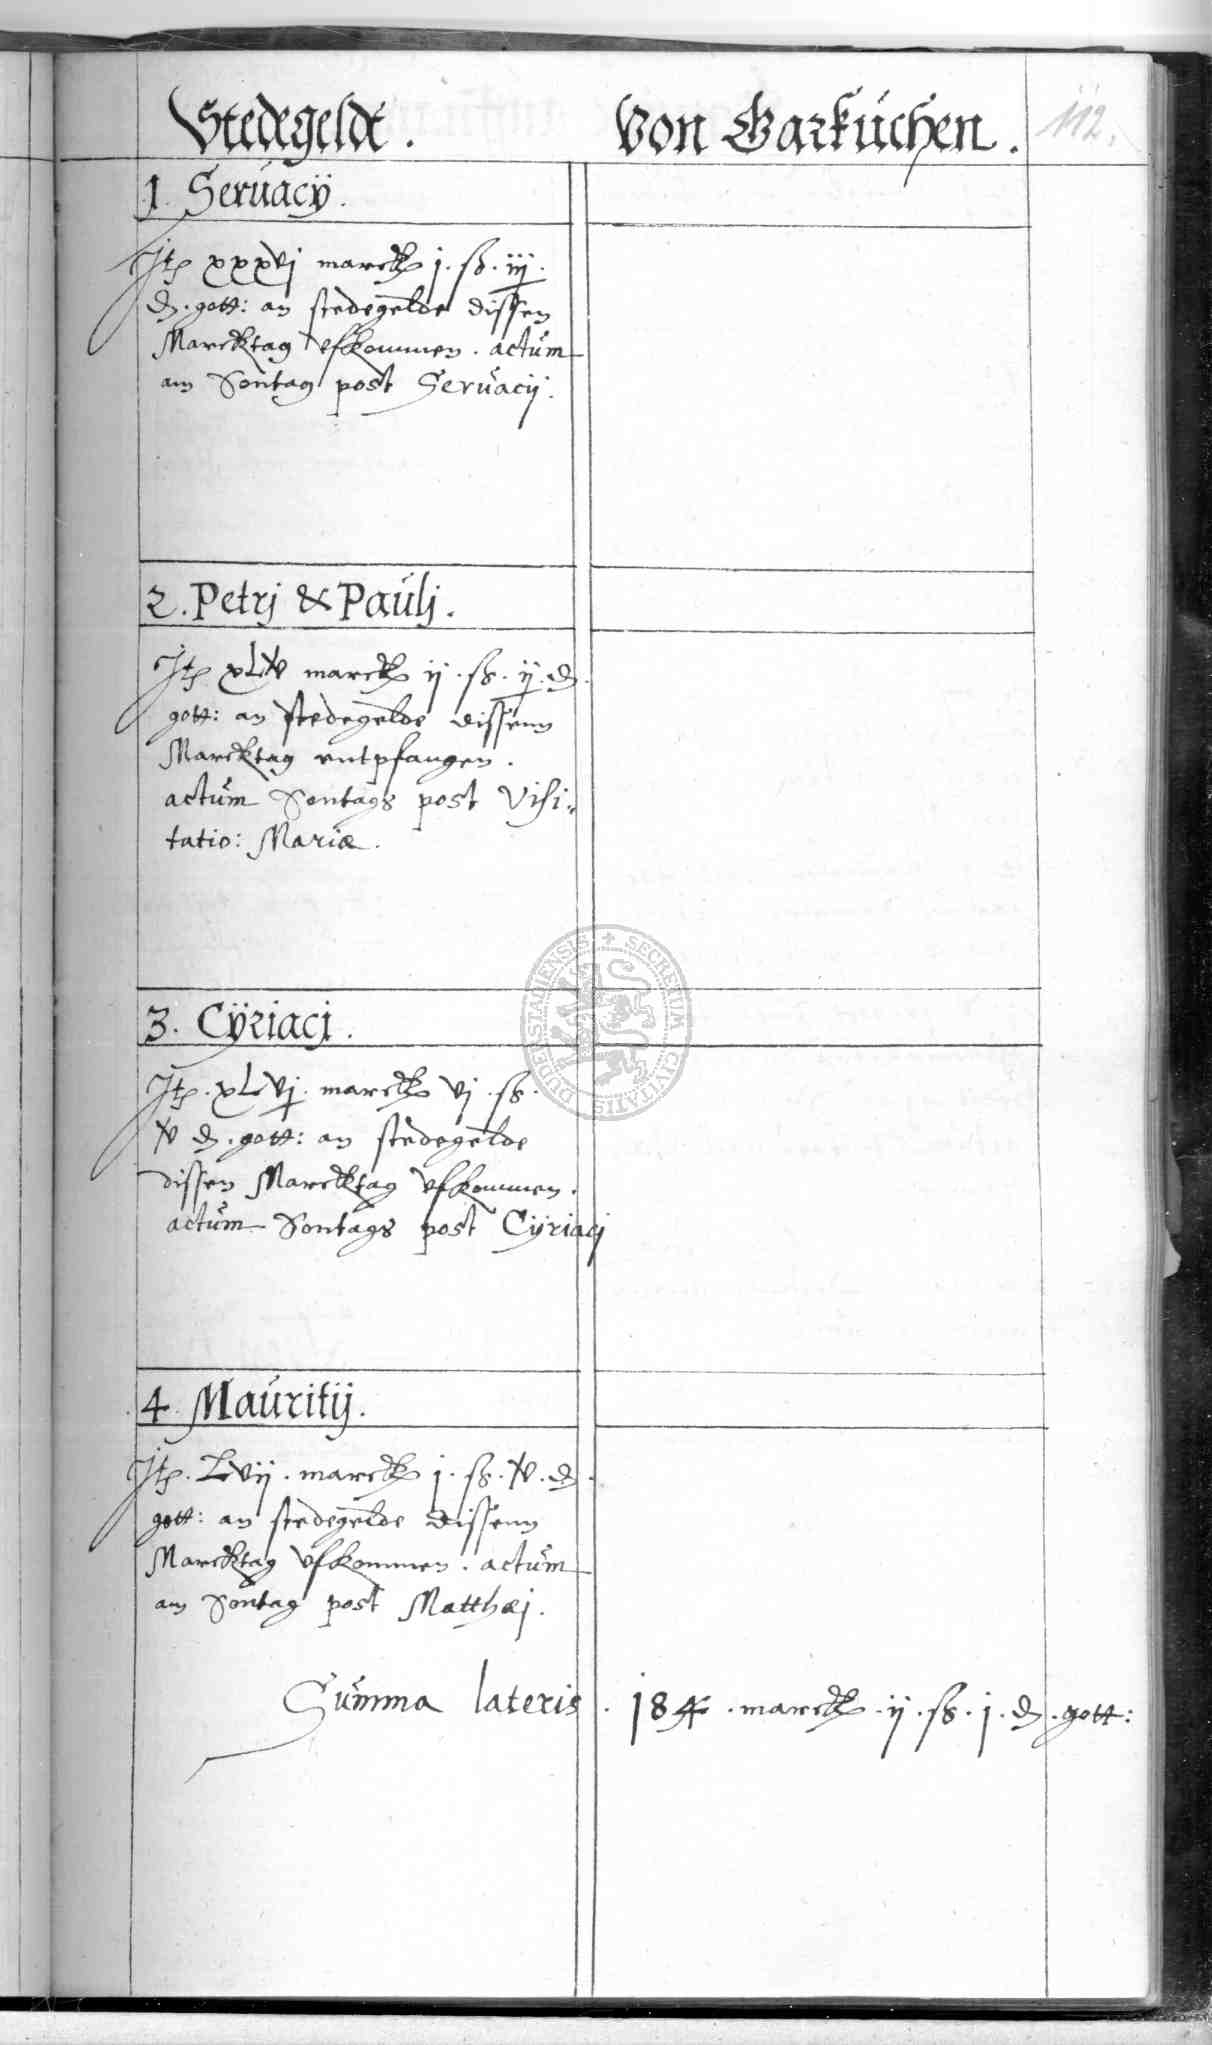 Stedegeldt. Von Garküchen. 112.
1. Servacÿ.
Jtem xxxvj marck j. ß. iij.
d. gott: an stedegelde dissen
Marcktag ufkommen. actum
am Sontag post Servacij.
2. Petrj & Paulj.
Jtem xLv marck ij. ß. ij. d.
gott: an stedegelde dissenn
Marcktag entpfangen.
actum Sontags post Visi:
tatio: Mariæ.
3. Cÿriacj.
Jtem. xLvj. marck vj. ß.
v d. gott: an stedegelde
dissen Marcktag ufkommen.
actum Sontags post Cÿriacj
4. Mauritij.
Jtem. Lvij. marck j. ß. v. d.
gott: an stedegelde dissenn
Marcktag ufkommen. actum
am Sontag post Matthæj.
Summa lateris. 184. marck. ij. ß. j. d. gott:
SECRETUM CIVITATIS DUDERSTADIENSIS